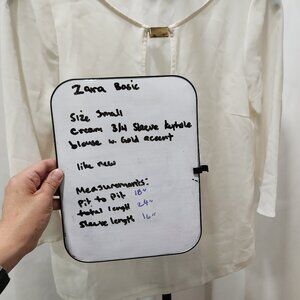 Zara Basic
Size Small
Cream 3/4 Sleeve keyhole
blouse w. Gold accent
like new
Measurements:
Pit to pit 18"
total length 24"
Sleeve length 16"